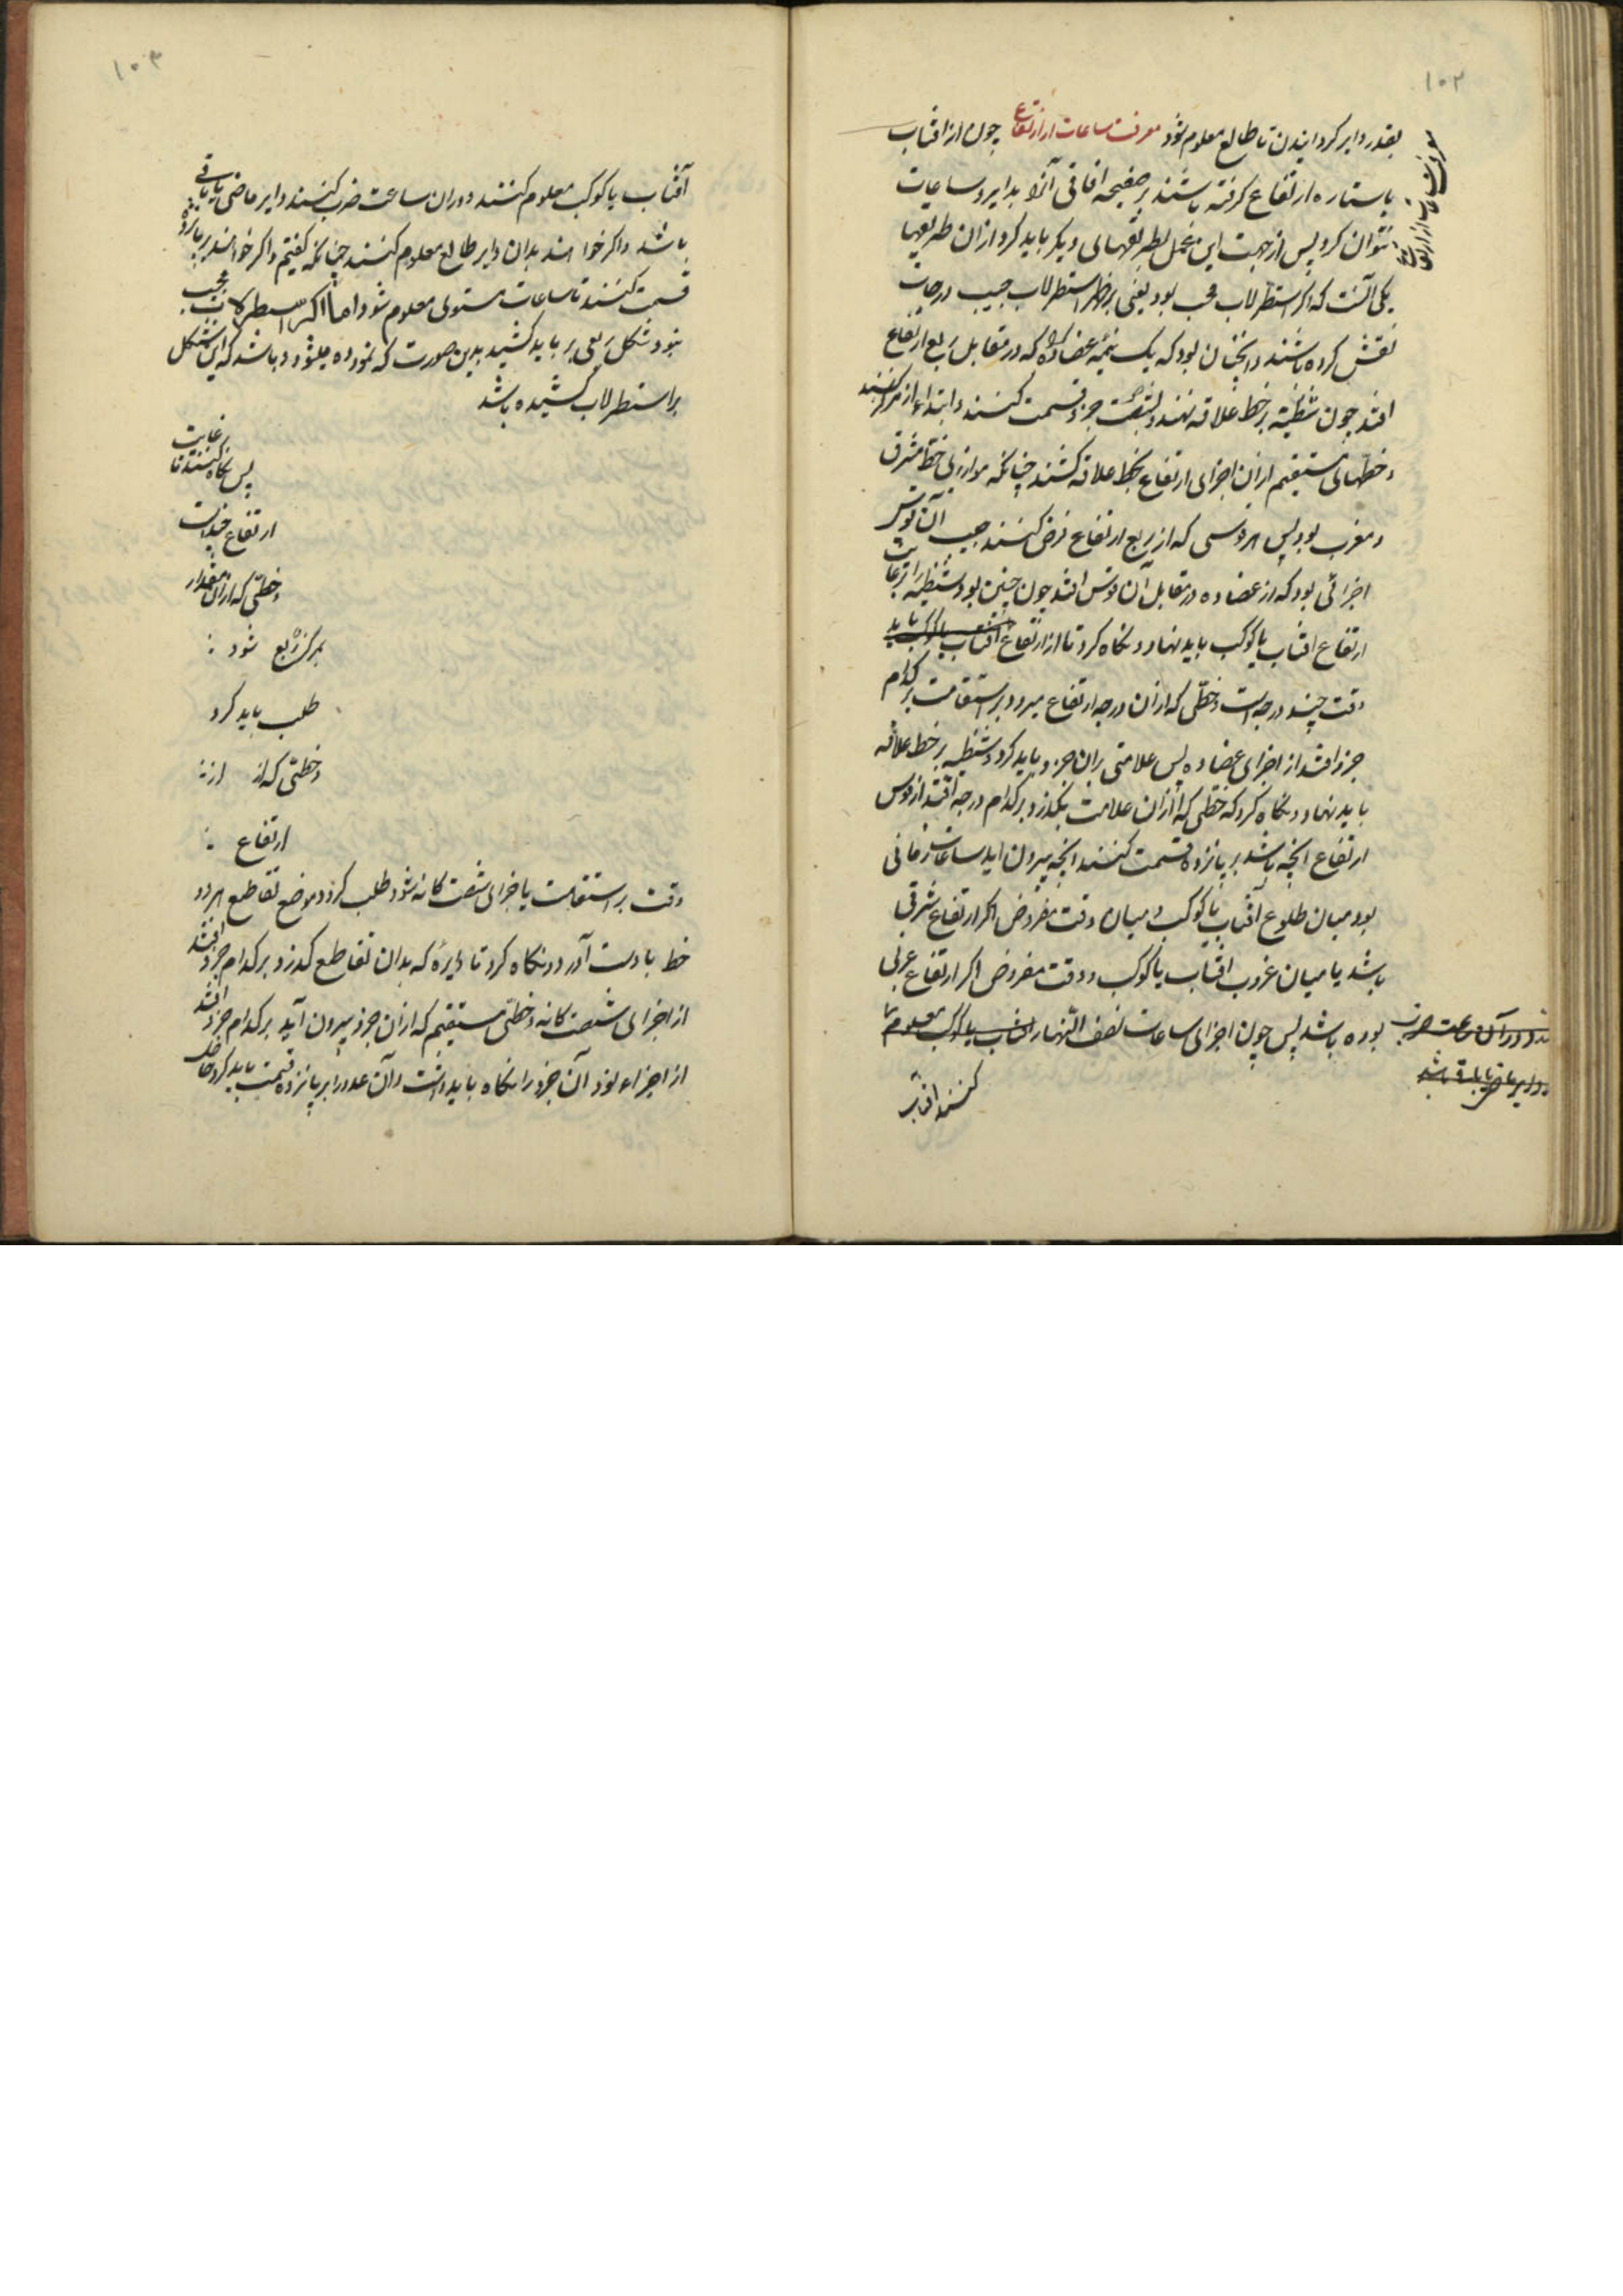 ۱۰۲
بقدر دایر کردانیدن تا طالع معلوم شود معرفت ساعات از ارتفاع چون از افتاب
معرفت ساعات از ارتفاع
یا ستاره ارتفاع کرفته باشند بر صفیحه افاقی آنرا بدایر و ساعات
نتوان کرد پس از جهت این عمل بطریقهای دیکر باید کرد و ازان طریقها
یکی آنست که اکر اسطرلاب مجیب بود یعنی بر ظهر اسطرلاب جیب درجات
نقش کرده باشند و آنچنان بود که یک نیمه عضاده را که در مقابل ربع ارتفاع
افتد چون شظیه بر خط علاقه نهند بشصت جزو قسمت کنند و ابتدا از مرکز کنند
و خطهای مستقیم ازان اجزای ارتفاع بخط علاقه کشند چنانکه موازی خط مشرق
و مغرب بود پس هر قوسی که از ربع ارتفاع فرض کنند جیب آن قوس
اجزائی بود که از عضاده در مقابل آن قوس افتد چون چنین بود شظیه را بر غایت
ارتفاع افتاب یا کوکب باید نهاد و نکاه کرد تا از ارتفاع افتاب یا کوکب باید
وقت چند درجه است و خطی که ازان درجه ارتفاع میرود بر استقامت بر کدام
جزو افتد از اجزای عضاده پس علامتی بران جزو باید کرد و شظیه بر خط علاقه
باید نهاد و نکاه کرد که خطی که ازان علامت بکذرد بر کدام درجه افتد از قوس
ارتفاع انچه باشد بر پانزده قسمت کنند انچه بیرون اید ساعات زمانی
بود میان طلوع آفتاب یا کوکب و میان وقت مفروض اکر ارتفاع شرقی
باشد یا میان غروب افتاب یا کوکب و وقت مفروض اکر ارتفاع غربی
بوده باشد پس چون اجزای ساعات نصف النهار افتاب یا کوکب معلوم
کنند افتاب
۱۰۳
آفتاب یا کوکب معلوم کنند و دران ساعت ضرب کنند دایر ماضی یا باقی
باشد و اکر خواهند بدان دایر طالع معلوم کنند چنانکه کفتیم و اکر خواهند بر پانزده
قسمت کنند تا ساعات مستوی معلوم شود اما اکر اسطرلاب مجیب
نبود شکل ربعی بر باید کشید بدین صورت که نموده میشود و باشد که این شکل
بر اسطرلاب کشیده باشد
پس نکاه کنند تا غایت
ارتفاع چندانست
و خطی که ازان مقدار
بمرکز ربع شود
طلب باید کرد
و خطی که از از
ارتفاع
وقت بر استقامت با جزای شصت کانه شود طلب کرد و موضع تقاطع هر دو
خط بادست آورد و نکاه کرد تا دایرهٔ که بدان تقاطع کذرد بر کدام جزو افتد
از اجزای شصت کانه و خطی مستقیم که ازان جزو بیرون آید بر کدام جزو افتد
از اجزاء قوس آن جزو را نکاه باید داشت و آن عدد را بر پانزده قسمت باید کرد